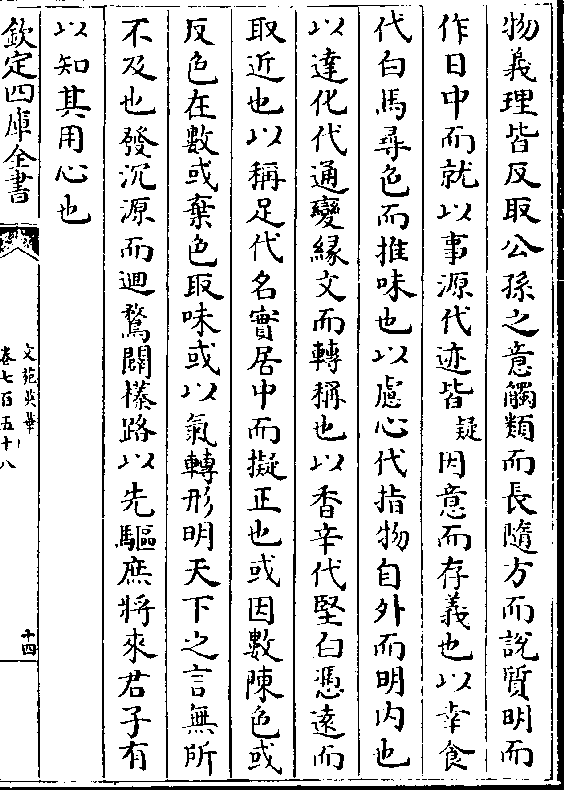 物義理皆反取公孫之意觸類而長隨方而說質明而
作日中而就以事源代迹皆疑因意而存義也以幸食
代白馬尋色而推味也以慮心代指物自外而明内也
以達化代通變縁文而轉稱也以香辛代堅白憑遠而
取近也以稱足代名實居中而擬正也或因數陳色或
反色在數或棄色取味或以氣轉形明天下之言無所
不及也發沉源而迴騖闢榛路以先驅庶將來君子有
以知其用心也
欽定四庫全書
文苑英華
卷七百五十八
十四